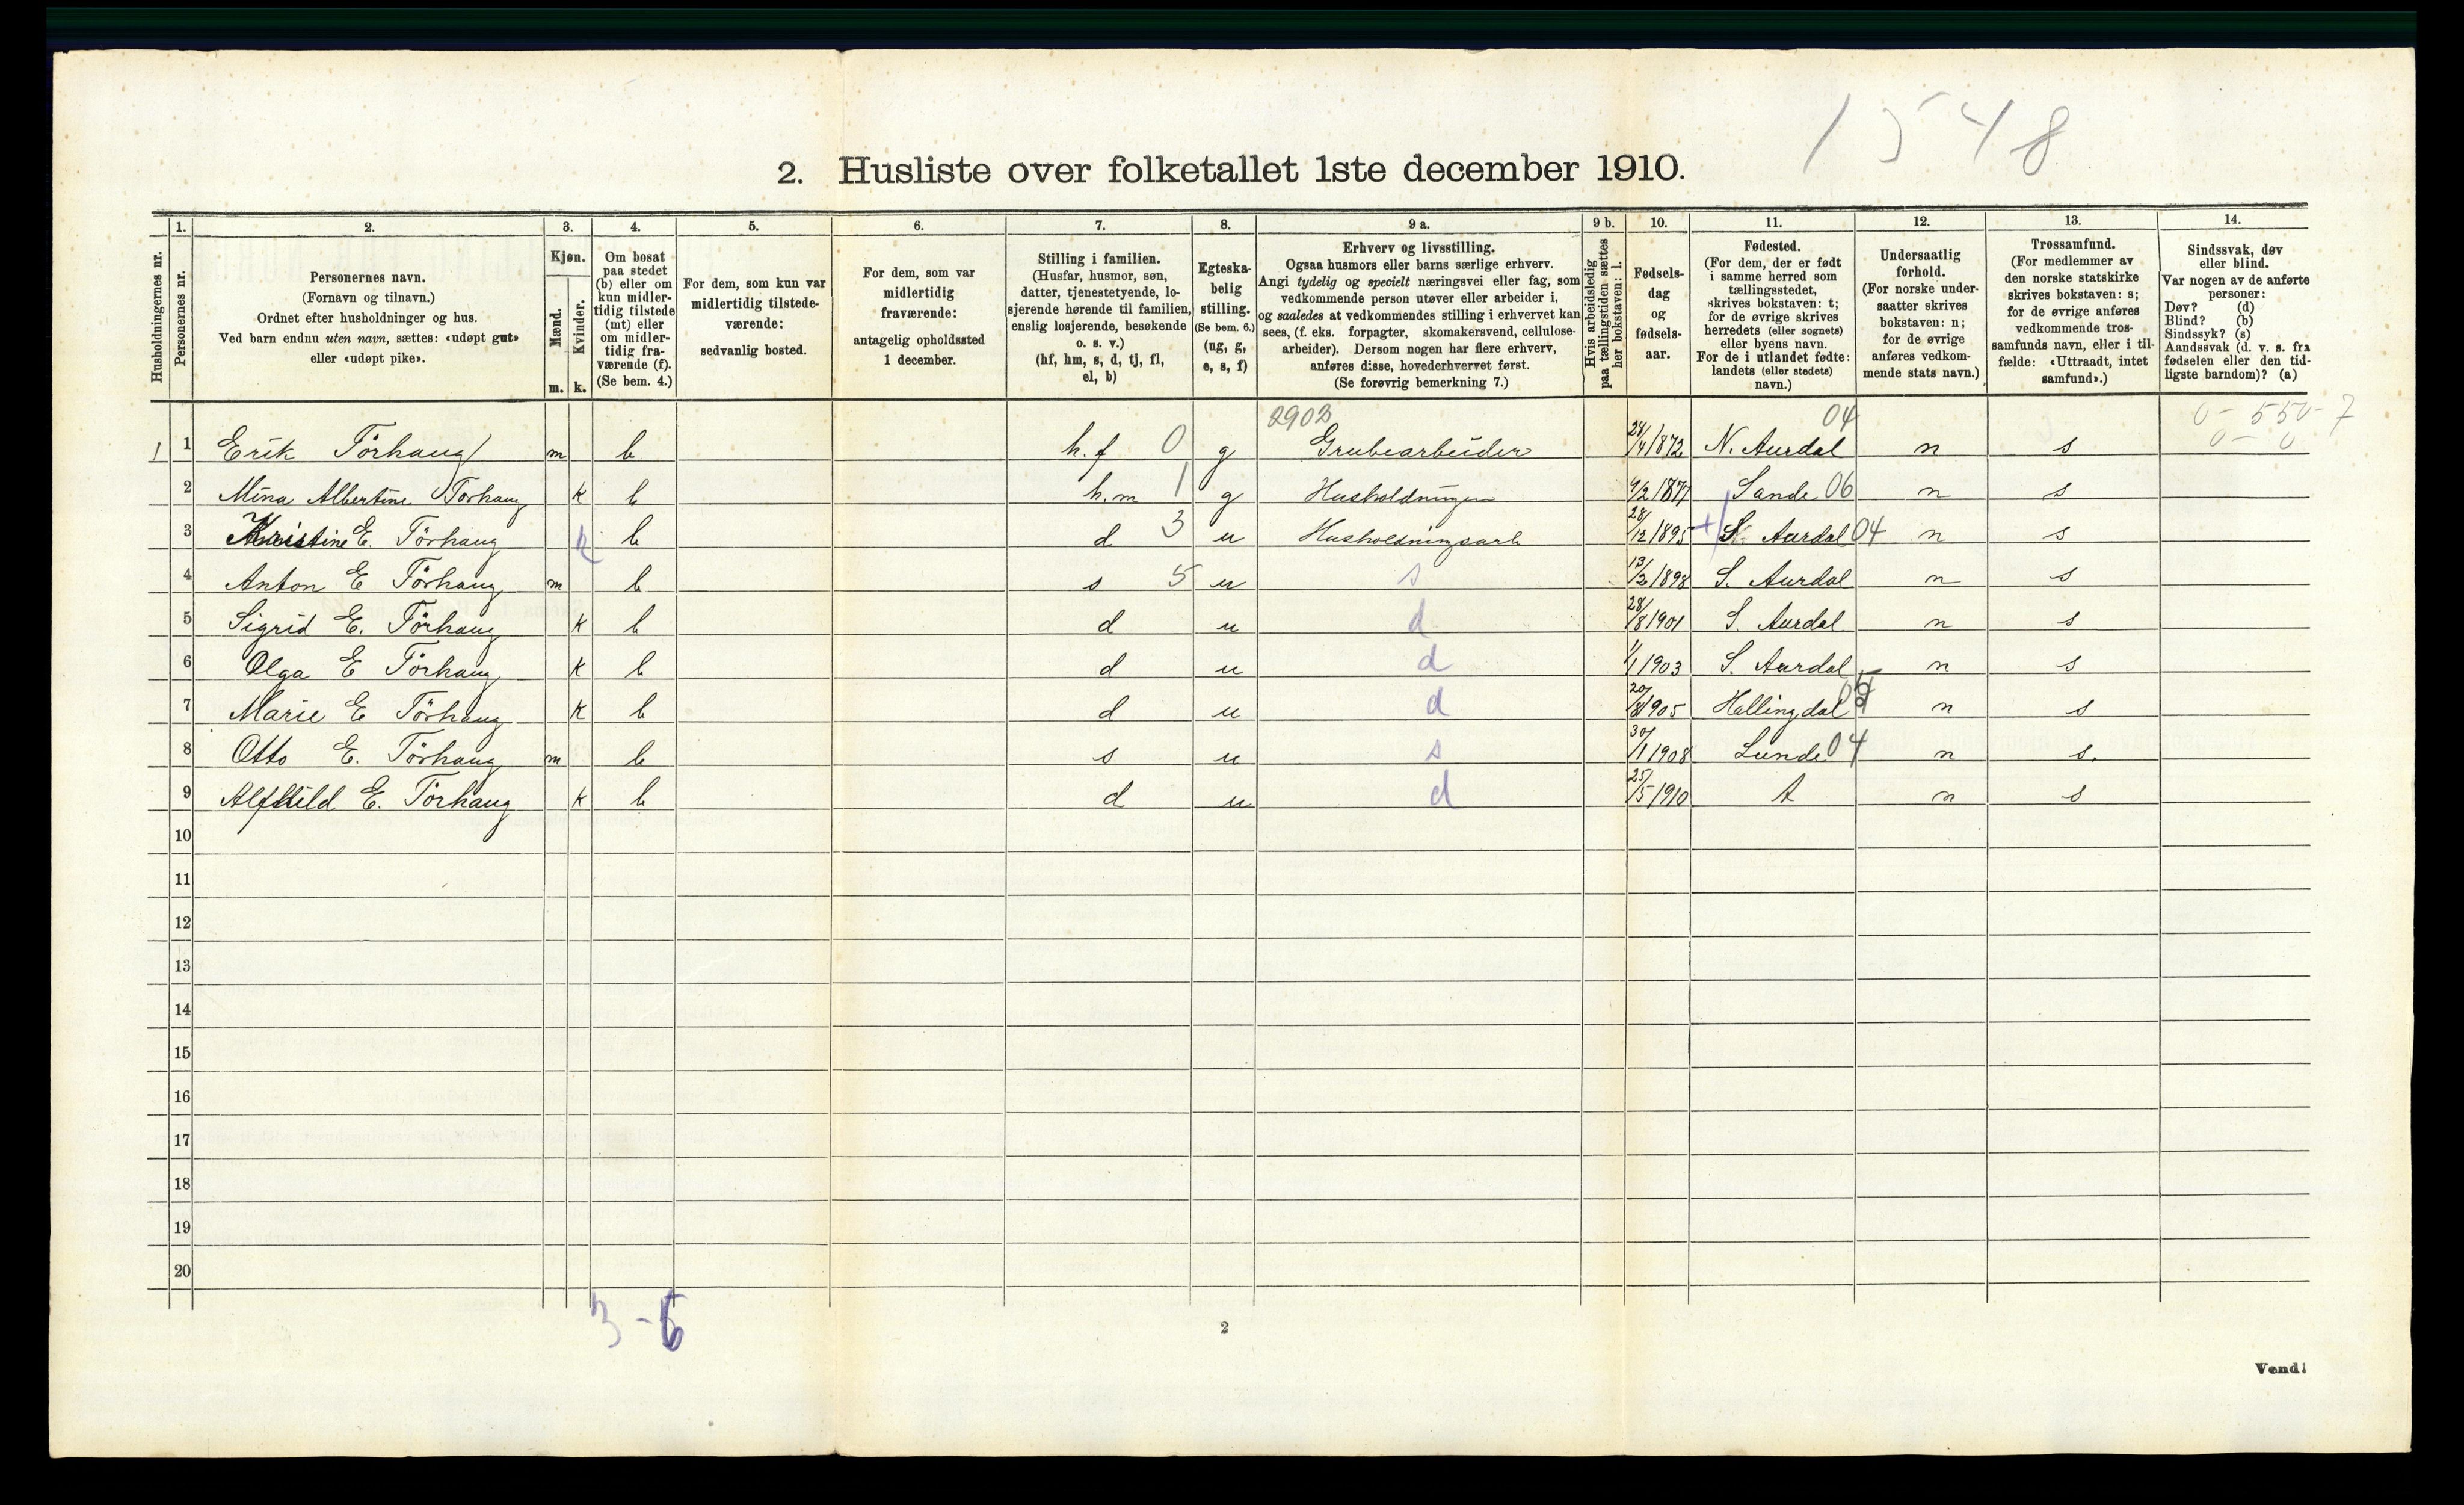 1548
2. Husliste over folketallet 1ste december 1910.
Husholdningernes nr.
1. Personernes nr.
2. Personernes navn.
(Fornavn og tilnavn.)
Ordnet efter husholdninger og hus.
Ved barn endnu uten navn, sættes: «udøpt gut»
eller «udøpt pike».
3. Kjøn.
Mænd. m.
Kvinder. k.
4. Om bosat
paa stedet
(b) eller om
kun midler-
tidig tilstede
(mt) eller
om midler-
tidig fra-
værende (f).
(Se bem. 4.)
5. For dem, som kun var
midlertidig tilstede-
værende:
sedvanlig bosted.
6. For dem, som var
midlertidig
fraværende:
antagelig opholdssted
1 december.
7. Stilling i familien.
(Husfar, husmor, søn,
datter, tjenestetyende, lo-
sjerende hørende til familien,
enslig losjerende, besøkende
o. s. v.)
(hf, hm, s, d, tj, fl,
el, b)
8. Egteska-
belig
stilling.
(Se bem. 6.)
(ug, g,
e, s, f)
9 a. Erhverv og livsstilling.
Ogsaa husmors eller barns særlige erhverv.
Angi tydelig og specielt næringsvei eller fag, som
vedkommende person utøver eller arbeider i,
og saaledes at vedkommendes stilling i erhvervet kan
sees, (f. eks. forpagter, skomakersvend, cellulose-
arbeider). Dersom nogen har flere erhverv,
anføres disse, hovederhvervet først.
(Se forøvrig bemerkning 7.)
9 b. Hvis arbeidsledig
paa tællingstiden sættes
her bokstaven: l.
10. Fødsels-
dag
og
fødsels-
aar.
11. Fødested.
(For dem, der er født
i samme herred som
tællingsstedet,
skrives bokstaven: t;
for de øvrige skrives
herredets (eller sognets)
eller byens navn.
For de i utlandet fødte:
landets (eller stedets)
navn.)
12. Undersaatlig
forhold.
(For norske under-
saatter skrives
bokstaven: n;
for de øvrige
anføres vedkom-
mende stats navn.)
13. Trossamfund.
(For medlemmer av
den norske statskirke
skrives bokstaven: s;
for de øvrige anføres
vedkommende tros-
samfunds navn, eller i til-
fælde: «Uttraadt, intet
samfund».)
14. Sindssvak, døv
eller blind.
Var nogen av de anførte
personer:
Døv? (d)
Blind? (b)
Sindssyk? (s)
Aandssvak (d. v. s. fra
fødselen eller den tid-
ligste barndom)? (a)
2903 04 0-550-7
1 1 Erik Törhaug m b h.f 0 g Grubearbeider 28/4 1872 N. Aurdal n s 0-0
2 Mina Albertine Törhaug k b h.m 1 g Husholdningen 9/2 1877 Sande 06 n s
3 Kristine E. Törhaug k b d 3 u Husholdningsarb 28/12 1895 S. Aurdal 04 n s
4 Anton E Törhaug m b s 5 u s 13/2 1898 S. Aurdal n s
5 Sigrid E. Törhaug k b d u d 28/8 1901 S. Aurdal n s
6 Olga E Törhaug k b d u d 1/1 1903 S. Aurdal n s
7 Marie E Törhaug k b d u d 20/8 1905 Hallingdal n s
8 Otto E. Törhaug m b s u s 30/1 1908 Lunde 04 n s.
9 Alfhild E. Törhaug k b d u d 25/5 1910 t n s
10
11
12
13
14
15
16
17
18
19
20
3-6
2
Vend!